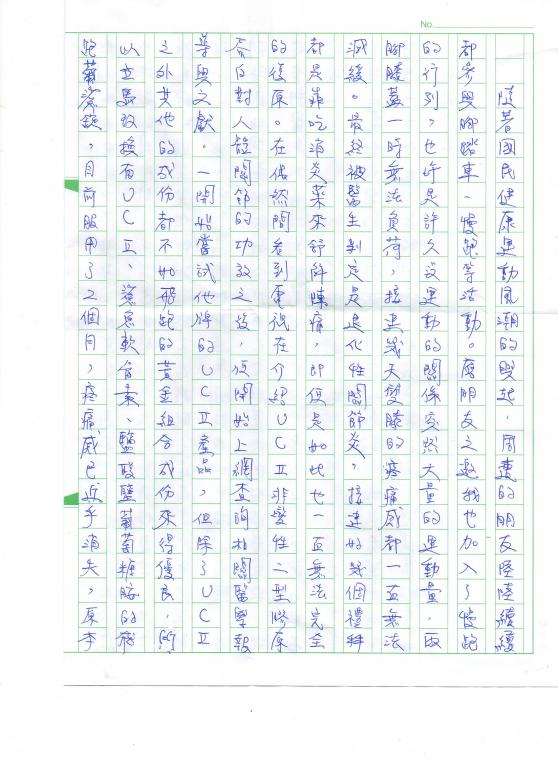 No.
隨著國民健康運動風潮的興起，周遭的朋友陸陸續續
都參與腳踏車、慢跑等活動。應朋友之邀我也加入了慢跑
的行列，也許是許久沒運動的關係突然大量的運動量，兩
腳膝蓋一時無法負荷，接連幾天雙膝的疼痛感都一直無法
減緩。最終被醫生判定是退化性關節炎，接連好幾個禮拜
都是靠吃消炎藥來舒解陳痛，即使是如此也一直無法完全
的復原。在偶然間看到電視在介紹UCII非變性二型膠原
蛋白對人體關節的功效之後，便開始上網查詢相關醫學報
導與文獻。一開始嘗試他牌的UCII產品，但除了UCII
之外其他的成份都不如飛跑的黃金組合成份來得優良，所
以立馬改換有UCII、鯊魚軟骨素、鹽酸鹽葡萄糖胺的飛
跑葡鯊錠，目前服用了2個月，疼痛感已近乎消失，原本